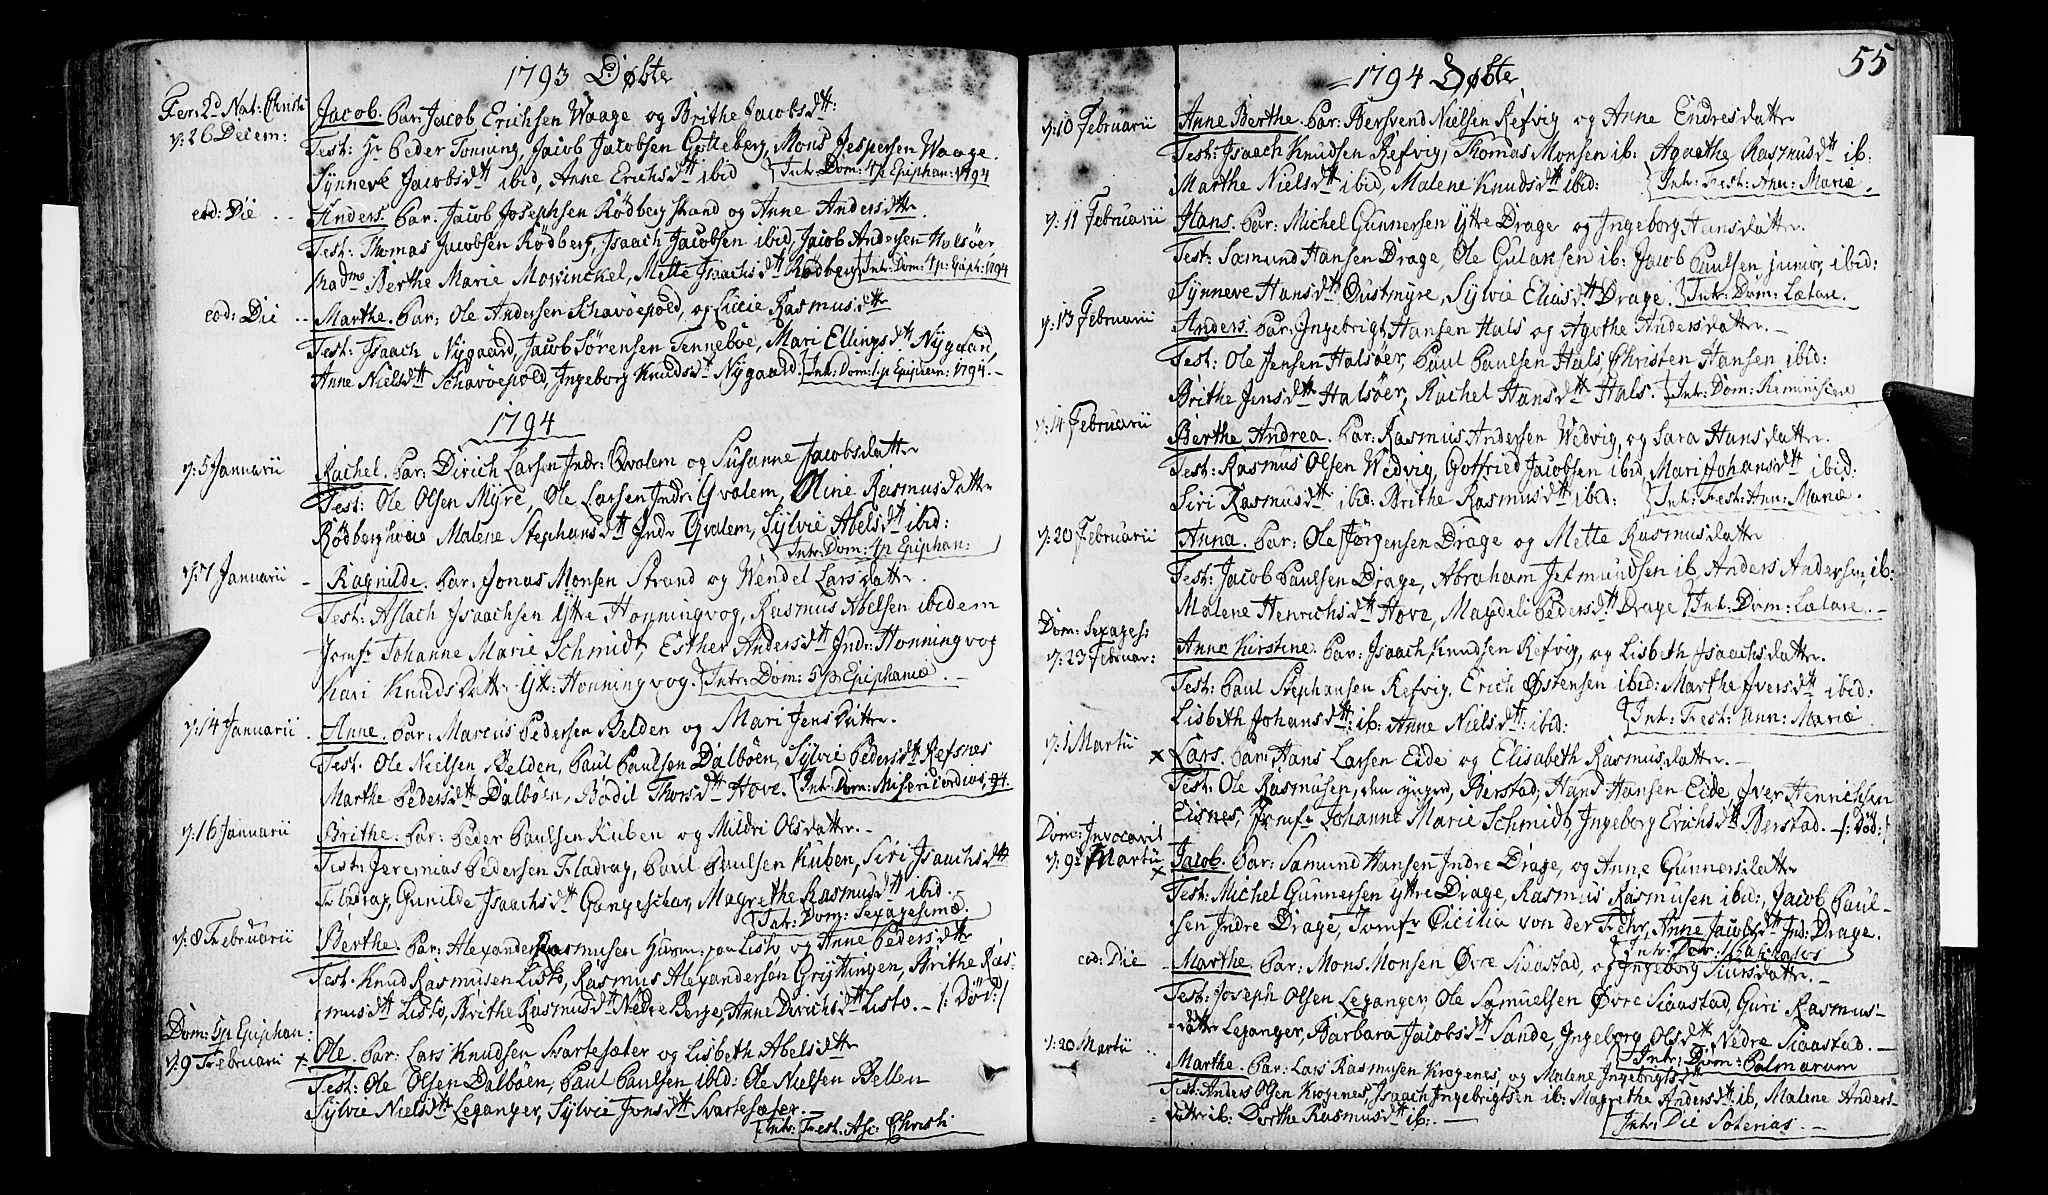 1793 Døbte
Fer: 2d Nat: Christi
d: 26 Decem:
Jacob. Par: Jacob Erichsen Waage og Brithe Jacobsdtt:
Test: Hr Peder Tonning, Jacob Jacobsen Gotteberg, Mons Jespersen Waage.
Synneve Jacobsdtt ibid, Anne Erichsdtt ibid Intr: Dom: 4 p Epiphan: 1794
eod: Die
Anders. Par: Jacob Josephsen Rødberg strand og Anne Andersdtt.
Test: Thomas Jacobsen Rødberg, Isaach Jacobsen ibid, Jacob Andersen Halsøer
Madme: Berthe Marie Mowinckel, Mette Isaachsdtt Rødberg Intr: Dom: 4 p: Epiph: 1794
eod: Die
Marthe. Par: Ole Andersen Schavøepold, og Lucie Rasmusdtt
Test: Isaach Nygaard, Jacob Sørensen Tenneböe, Mari Ellingsdtt Nygaard,
Anne Nielsdtt Schavöepold, Ingeborg Knudsdtt Nygaard. Intr: Dom: 1 p Epiphan: 1794.
1794
d: 5 Januarii
Rachel. Par: Dirich Larsen Indr: Qvalem og Susanne Jacobsdatter
Test: Ole Olsen Myre, Ole Larsen Indr: Qvalem, Oline Rasmusdatter
Rødberghovie Malene Stephansdtt Indr Qvalem, Sylvie Abelsdtt ibid:
Intr: Dom: 4 p Epiphan:
d: 7 Januarii
Ragnilde. Par: Jonas Monsen Strand og Wendel Larsdatter.
Test: Aslach Isaachsen Ytre Honningvog, Rasmus Abelsen ibidem
Jomfr Johanne Marie Schmidt, Esther Andersdtt Indr: Honningvog
Kari Knudsdatter Ytr: Honningvog. Intr: Dom: 5 p Epiphaniæ.
d: 14 Januarii
Anne. Par: Marcus Pedersen Belden og Mari Jensdatter.
Test: Ole Nielsen Belden, Paul Paulsen Dalböen, Sylvie Pedersdtt Refsnes
Marthe Pedersdtt Dalböen, Bodil Thorsdtt Hove. Intr: Dom: Misericordias, 94.
d: 16 Januarii
Brithe. Par: Peder Paulsen Kuben og Mildri Olsdatter.
Test: Jeremias Pedersen Fladrag, Paul Paulsen Kuben, Siri Isaachsdtt
Fladrag, Gunilde Isaachsdtt Gangeschar, Magrethe Rasmusdtt ibid.
Intr: Dom: Sexagesimæ.
d: 8 Februarii
Berthe. Par: Alexander Rasmusen Huusm: paa Listo og Anne Pedersdtt
Test: Knud Rasmusen Listo, Rasmus Alexandersen Gryttingen, Brithe Ras-
musdtt Listo, Brithe Rasmusdtt Nedre Berge, Anne Dirichsdtt Listo. /: Död :/
Dom: 5 p Epiphan:
d: 9 Februarii
Ole. Par: Lars Knudsen Svartesæter og Lisbeth Abelsdtt
Test: Ole Olsen Dalböen, Paul Paulsen ibid: Ole Nielsen Bellen
Sylvie Nielsdtt Leganger, Sylvie Jonsdtt Svartesæter.
Intr: Fest: Asc: Christi
1794 Døbte
55
d: 10 Februarii
Anne Berthe. Par: Bersvend Nielsen Refvig og Anne Endresdatter
Test: Isaach Knudsen Refvig, Thomas Monsen ib: Agathe Rasmusdtt ib.
Marthe Nielsdtt ibid, Malene Knudsdtt ibid: Intr: Fest: Ann: Mariæ.
d: 11 Februarii
Hans. Par: Michel Gunnersen Ytre Drage og Ingeborg Hansdatter.
Test: Samund Hansen Drage, Ole Gulaksen ib: Jacob Paulsen junior, ibid:
Synneve Hansdtt Oustmyre, Sylvie Eliasdtt Drage. Intr: Dom: Lætare.
d: 13 Februarii
Anders. Par: Ingebrigt Hansen Hals og Agothe Andersdatter.
Test: Ole Jensen Halsøer, Paul Paulsen Hals, Christen Hansen ibid:
Brithe Jensdtt Halsøer, Rachel Hansdtt Hals. Intr: Dom: Reminiscere
d: 14 Februarii
Berthe Andrea. Par: Rasmus Andersen Wedvig, og Sara Hansdatter.
Test: Rasmus Olsen Wedvig, Gotfried Jacobsen ibid, Mari Johansdtt ibid:
Siri Rasmusdtt ibid: Brithe Rasmusdtt ibid: Intr: Fest: Ann: Mariæ.
d: 20 Februarii
Anna. Par: Ole Jørgensen Drage og Mette Rasmusdatter
Test: Jacob Paulsen Drage, Abraham Jetmundsen ib, Anders Andersen, ib:
Malene Henrichsdtt Hove, Magdeli Pedersdtt Drage Intr: Dom: Lætare.
Dom: Sexages:
d: 23 Februar:
Anne Kirstine. Par: Isaach Knudsen Refvig, og Lisbeth Isaachsdatter.
Test: Paul Stephansen Refvig, Erich Östensen ibid: Marthe Iversdtt ibid:
Lisbeth Johansdtt: ib: Anne Nielsdtt: ibid: Intr: Fest: Ann: Mariæ
d: 1 Martii
Lars. Par: Hans Larsen Eide og Elisabeth Rasmusdatter.
Test: Ole Rasmusen, den yngre, Berstad, Hans Hansen Eide, Iver Henrichsen
Eisnes, Jomfr Johanne Marie Schmidt, Ingeborg Erichsdtt Berstad. /: Död: /
Dom: Invocavit
d: 9 Martii
Jacob. Par: Samund Hansen Indre Drage, og Anne Gunnersdatter
Test: Michel Gunnersen Ytre Drage, Rasmus Rasmusen ibid:, Jacob Paul-
sen Indre Drage, Jomfr Cicilia von der Fehr, Anne Jacobsdtt Ind: Drage.
eod: Die
Marthe. Par: Mons Monsen Øvre Siaastad, og Ingeborg Siursdatter.
Test: Joseph Olsen Leganger, Ole Samuelsen Øvre Siaastad, Guri Rasmus-
datter Leganger, Barbara Jacobsdtt Sande, Ingeborg Olsdtt Nedre Siaastad.
Intr: Dom: Palmarum
d: 20 Martii
Marthe. Par: Lars Rasmusen Krogenes, og Malene Ingebrigtsdtt
Test: Anders Olsen Krogenes, Isaach Ingebrigtsen ib: Magrethe Andersdtt ib, Malene Anders-
datter ib: Dorthe Rasmusdtt ib:.
Intr: Die Soterias.